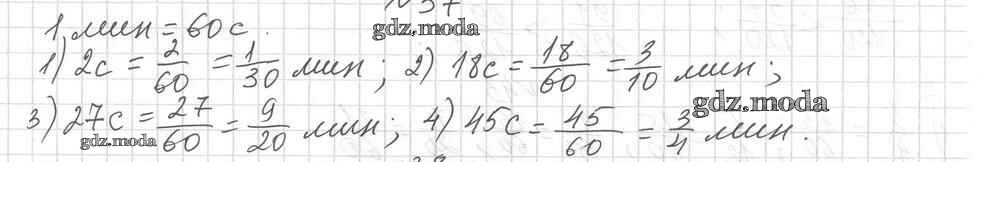 №37
1 мин = 60 с.
gdz.moda
1) 2с = 2/60 = 1/30 мин; 2) 18с = 18/60 = 3/10 мин;
gdz.moda
3) 27с = 27/60 = 9/20 мин; 4) 45с = 45/60 = 3/4 мин.
gdz.moda